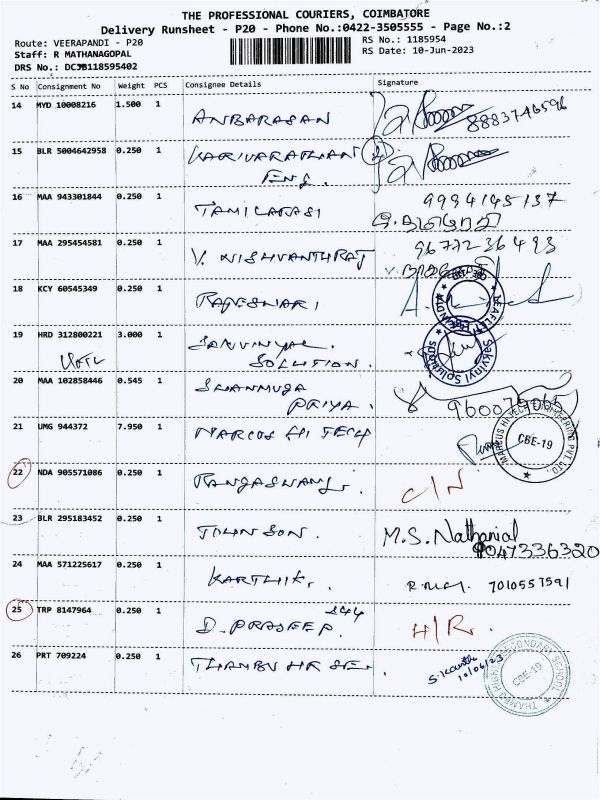 THE PROFESSIONAL COURIERS, COIMBATORE
Delivery Runsheet - P20 - Phone No.:0422-3505555 - Page No.:2
Route: VEERAPANDI - P20
RS No.: 1185954
Staff: R MATHANAGOPAL
RS Date: 10-Jun-2023
DRS No.: DCJB118595402
S No Consignment No Weight PCS Consignee Details Signature
14 MYD 10008216 1.500 1 ANBARASAN 8883746596
15 BLR 5004642958 0.250 1 KARIVARATHAN
ENG.
16 MAA 943301844 0.250 1 TAMILARASI 9994145137
17 MAA 295454581 0.250 1 V. NISHVANTHRAJ 9677236493
18 KCY 60545349 0.250 1 RAJESWARI
19 HRD 312800221 3.000 1 SAKVINYAL
SOLUTION.
Sakvinyl Solutions
20 MAA 102858446 0.545 1 SHANMUGA
PRIYA.
21 UMG 944372 7.950 1 MARCUS HI TECH
MARCUS HI-TECH ENGINEERING PVT. LTD.
CBE-19
22 NDA 905571086 0.250 1 RANGASWAMY. C/N
23 BLR 295183452 0.250 1 JOHNSON. M.S. Nathanial
9047336320
24 MAA 571225617 0.250 1 KARTHIK. 7010557591
25 TRP 8147964 0.250 1 D. PRADEEP. 244 H/R.
26 PRT 709224 0.250 1 THAMBU HR SEC. S. Kavitha
10/06/23
THAMBU HIGHER SECONDARY SCHOOL
CBE-19